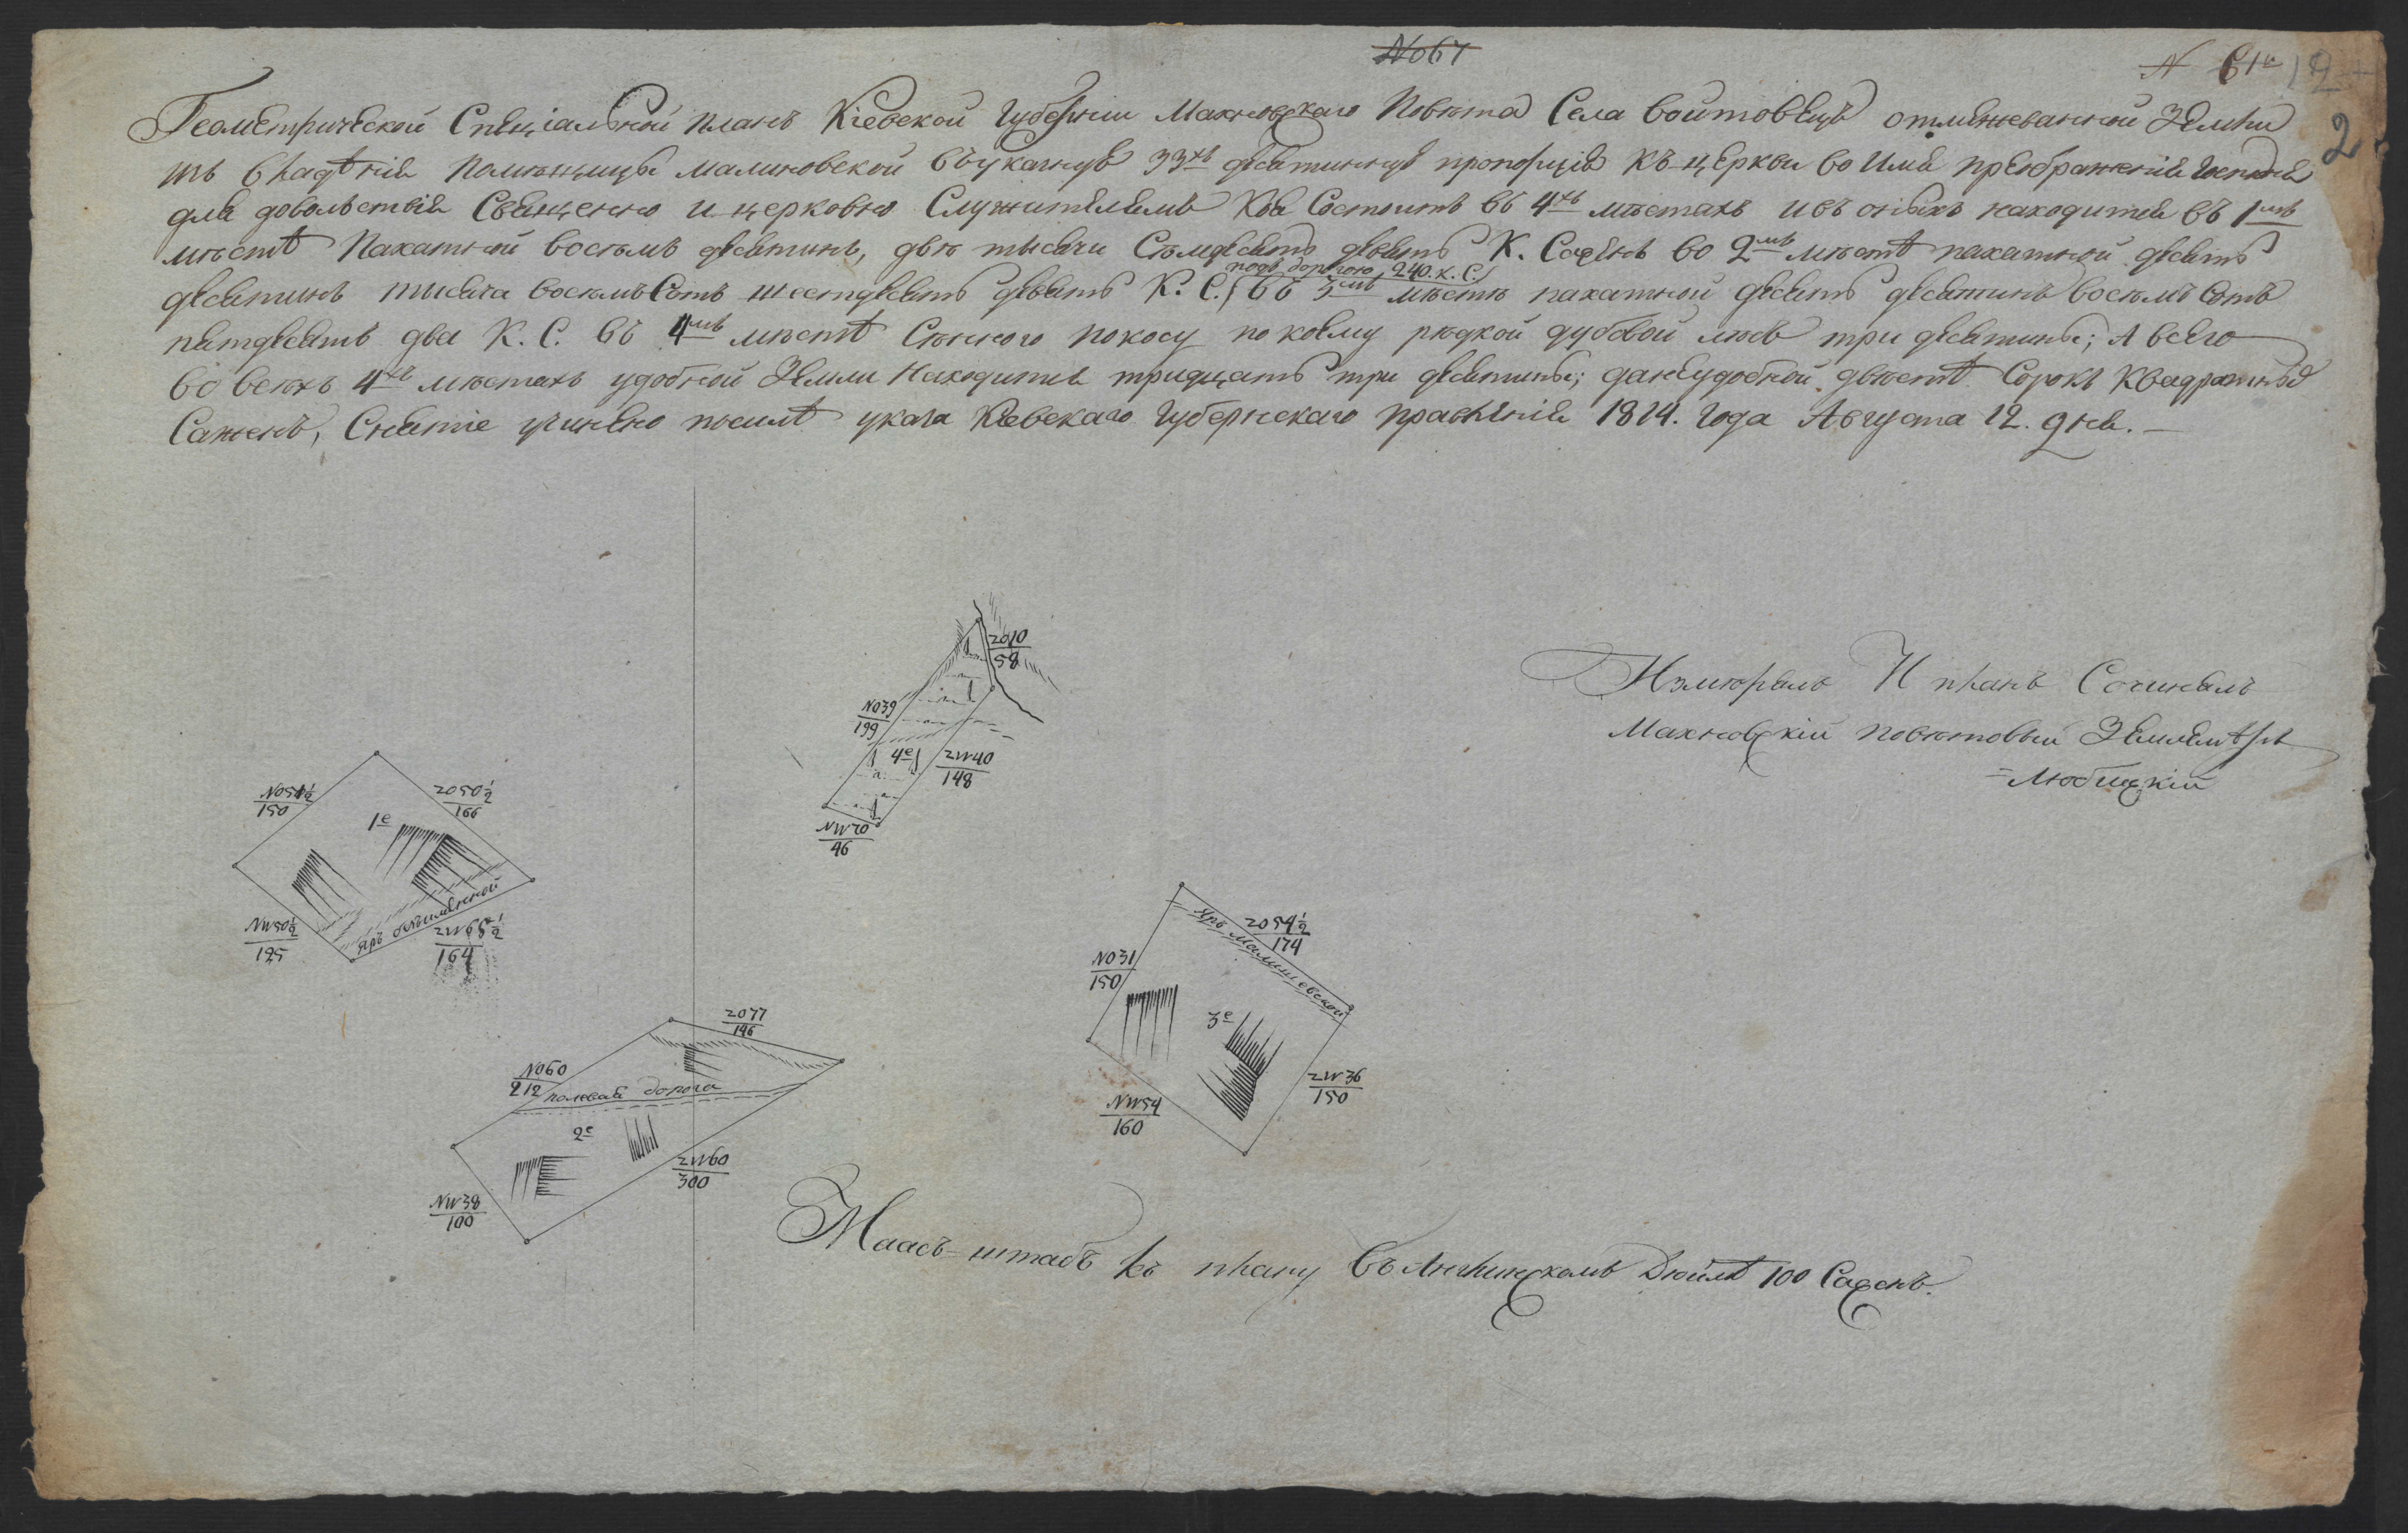 No 67
N 61й
2
2
Геометрической Спеціальной планъ Кіевской Губерніи Махновскаго Повѣта Села Войтовецъ отмежеванной Земли
изъ владѣнія Помѣщицы Малиновской въ указную 33хъ десятинную пропорцію къ церкви во Имя преображенія Господня
для довольствія Священно и церковно Служителямъ Коя Состоитъ въ 4хъ мѣстахъ изъ оныхъ находится въ 1мъ
мѣстѣ Пахатной восемь десятинъ, двѣ тысячи Семдесятъ девять К. Саженъ во 2мъ мѣстѣ пахатной десять
подъ дорогою 240. К. С.
десятинъ тысяча восемъ Сотъ шестдесятъ девять К. С. въ 3мъ мѣстѣ пахатной десять десятинъ восемъ Сотъ
пятдесятъ два К. С. въ 4мъ мѣстѣ Сѣнного покосу по коему рѣдкой дубовой лѣсъ три десятины; А всего
во всѣхъ 4хъ мѣстахъ удобной Земли Находится тридцать три десятины; да неудобной двѣстѣ Сорокъ Квадратныхъ
Саженъ, Снятіе учинено посилѣ указа Кіевскаго Губернскаго правленія 1824. Года Августа 12. дня.
Измѣрялъ И планъ Сочинялъ
Махновскій повѣтовый Землемѣръ
Любицкій
2010
58
NO39
199
4е
ZW40
148
NW70
46
NO51½
150
ZO50½
166
1е
NW50½
195
яръ
ZW65½
164
ZO54½
174
яръ Малишевской
NO31
150
3е
ZW36
150
NW54
160
ZO77
196
NO60
212
полевая дорога
2е
ZW60
300
NW38
100
Маасъ-штабъ къ плану въ Англинскомъ Дюймѣ 100 Саженъ.